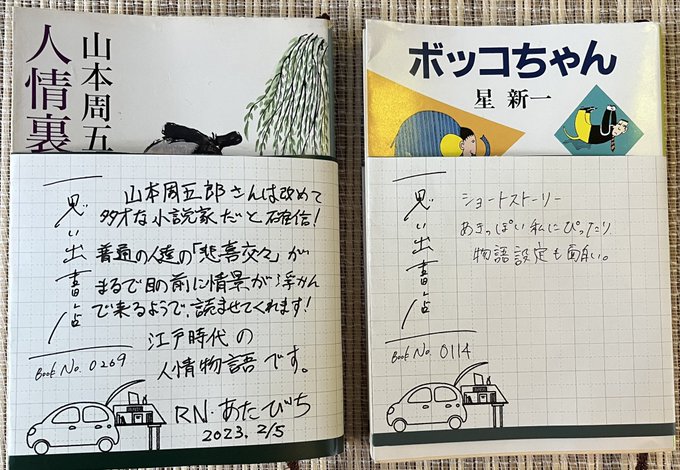 山本周五
人情裏
思い出書店
山本周五郎さんは改めて
多才な小説家だと確信!
普通の人達の「悲喜交々」が
まるで目の前に情景が浮かん
で来るようで、読ませてくれます!
江戸時代の
人情物語です。
Book No. 0269
RN.あたびち
2023. 2/5
ボッコちゃん
星 新一
思い出書店
ショートストーリー
あきっぽい私にぴったり
物語設定も面白い。
Book No. 0114